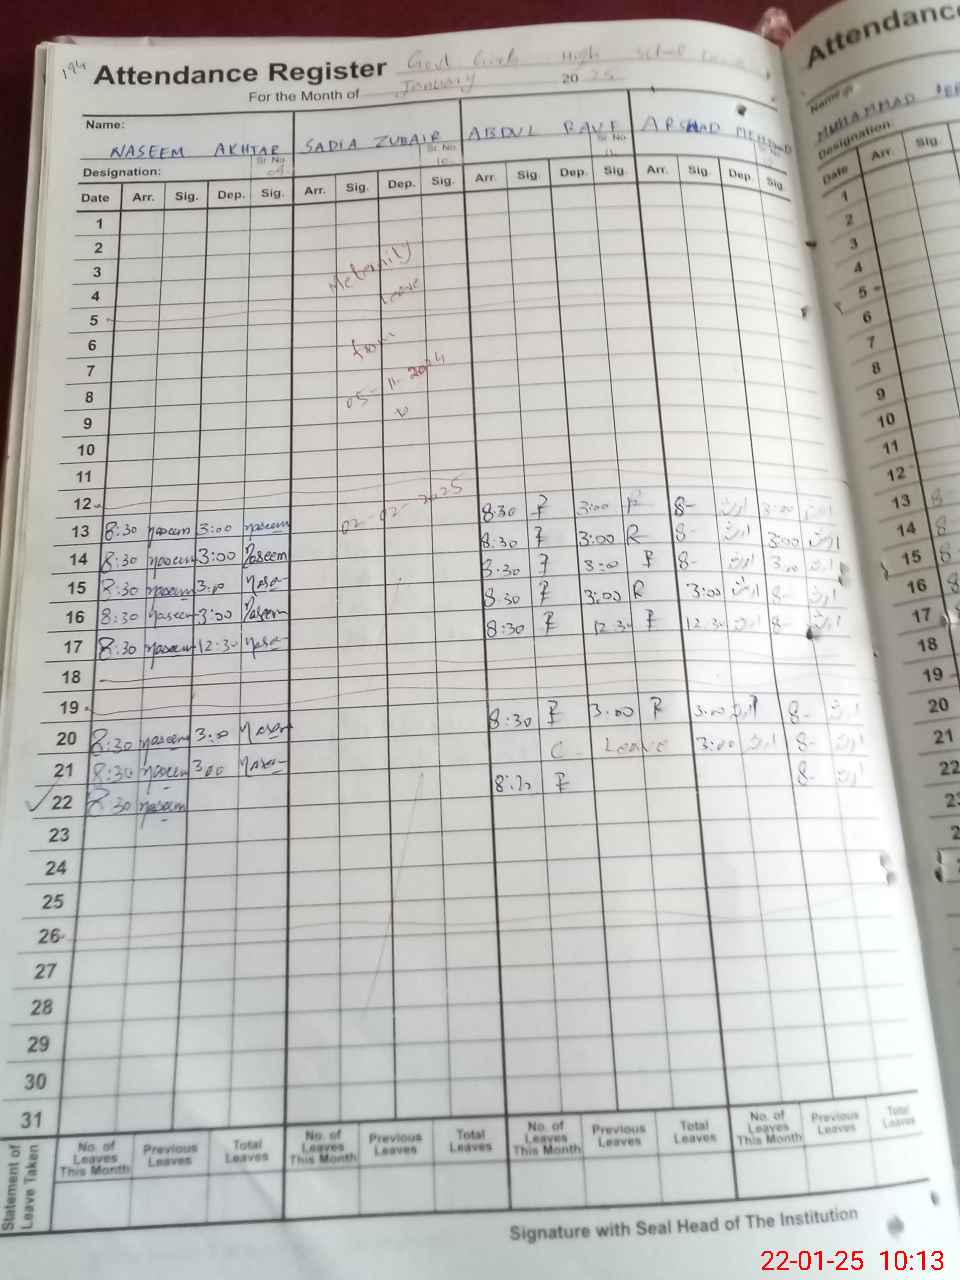 194
Attendance Register Govt Girls High School
Attendance
For the Month of January 2025
Name:
NASEEM AKHTAR SADIA ZUBAIR ABDUL RAUF ARSHAD MEHMOOD
Name:
MUHAMMAD
Designation: Sr No 09 Sr No 10 Sr No 11 Sr No
Designation:
Date Arr. Sig. Dep. Sig. Arr. Sig. Dep. Sig. Arr. Sig. Dep. Sig. Arr. Sig. Dep. Sig.
Date Arr. Sig.
1 1
2 2
3 Maternity 3
4 Leave 4
5 5
6 from 6
7 7
8 05-11-2024 8
9 9
10 10
11 11
12 12
13 8:30 naseem 3:00 naseem 02-02-2025 8:30 R 3:00 R 8- ارشد 3:00 ارشد 13 8
14 8:30 naseem 3:00 naseem 8:30 R 3:00 R 8- ارشد 3:00 ارشد 14 8
15 8:30 naseem 3:00 8:30 R 3:00 R 8- ارشد 3:00 ارشد 15 8
16 8:30 naseem 3:00 naseem 8:30 R 3:00 R 3:00 ارشد 8- ارشد 16 8
17 8:30 naseem 12:30 8:30 R 12:30 R 12:30 ارشد 8- ارشد 17
18 18
19 19
20 8:30 naseem 3:00 8:30 R 3:00 R 3:00 ارشد 8- ارشد 20
21 8:30 naseem 3:00 C. Leave 3:00 ارشد 8- ارشد 21
22 8:30 naseem R 8- ارشد 22
23
24
25
26
27
28
29
30
31
Statement of Leave Taken
No. of Leaves This Month Previous Leaves Total Leaves No. of Leaves This Month Previous Leaves Total Leaves No. of Leaves This Month Previous Leaves Total Leaves No. of Leaves This Month Previous Leaves Total Leaves
Signature with Seal Head of The Institution
22-01-25 10:13